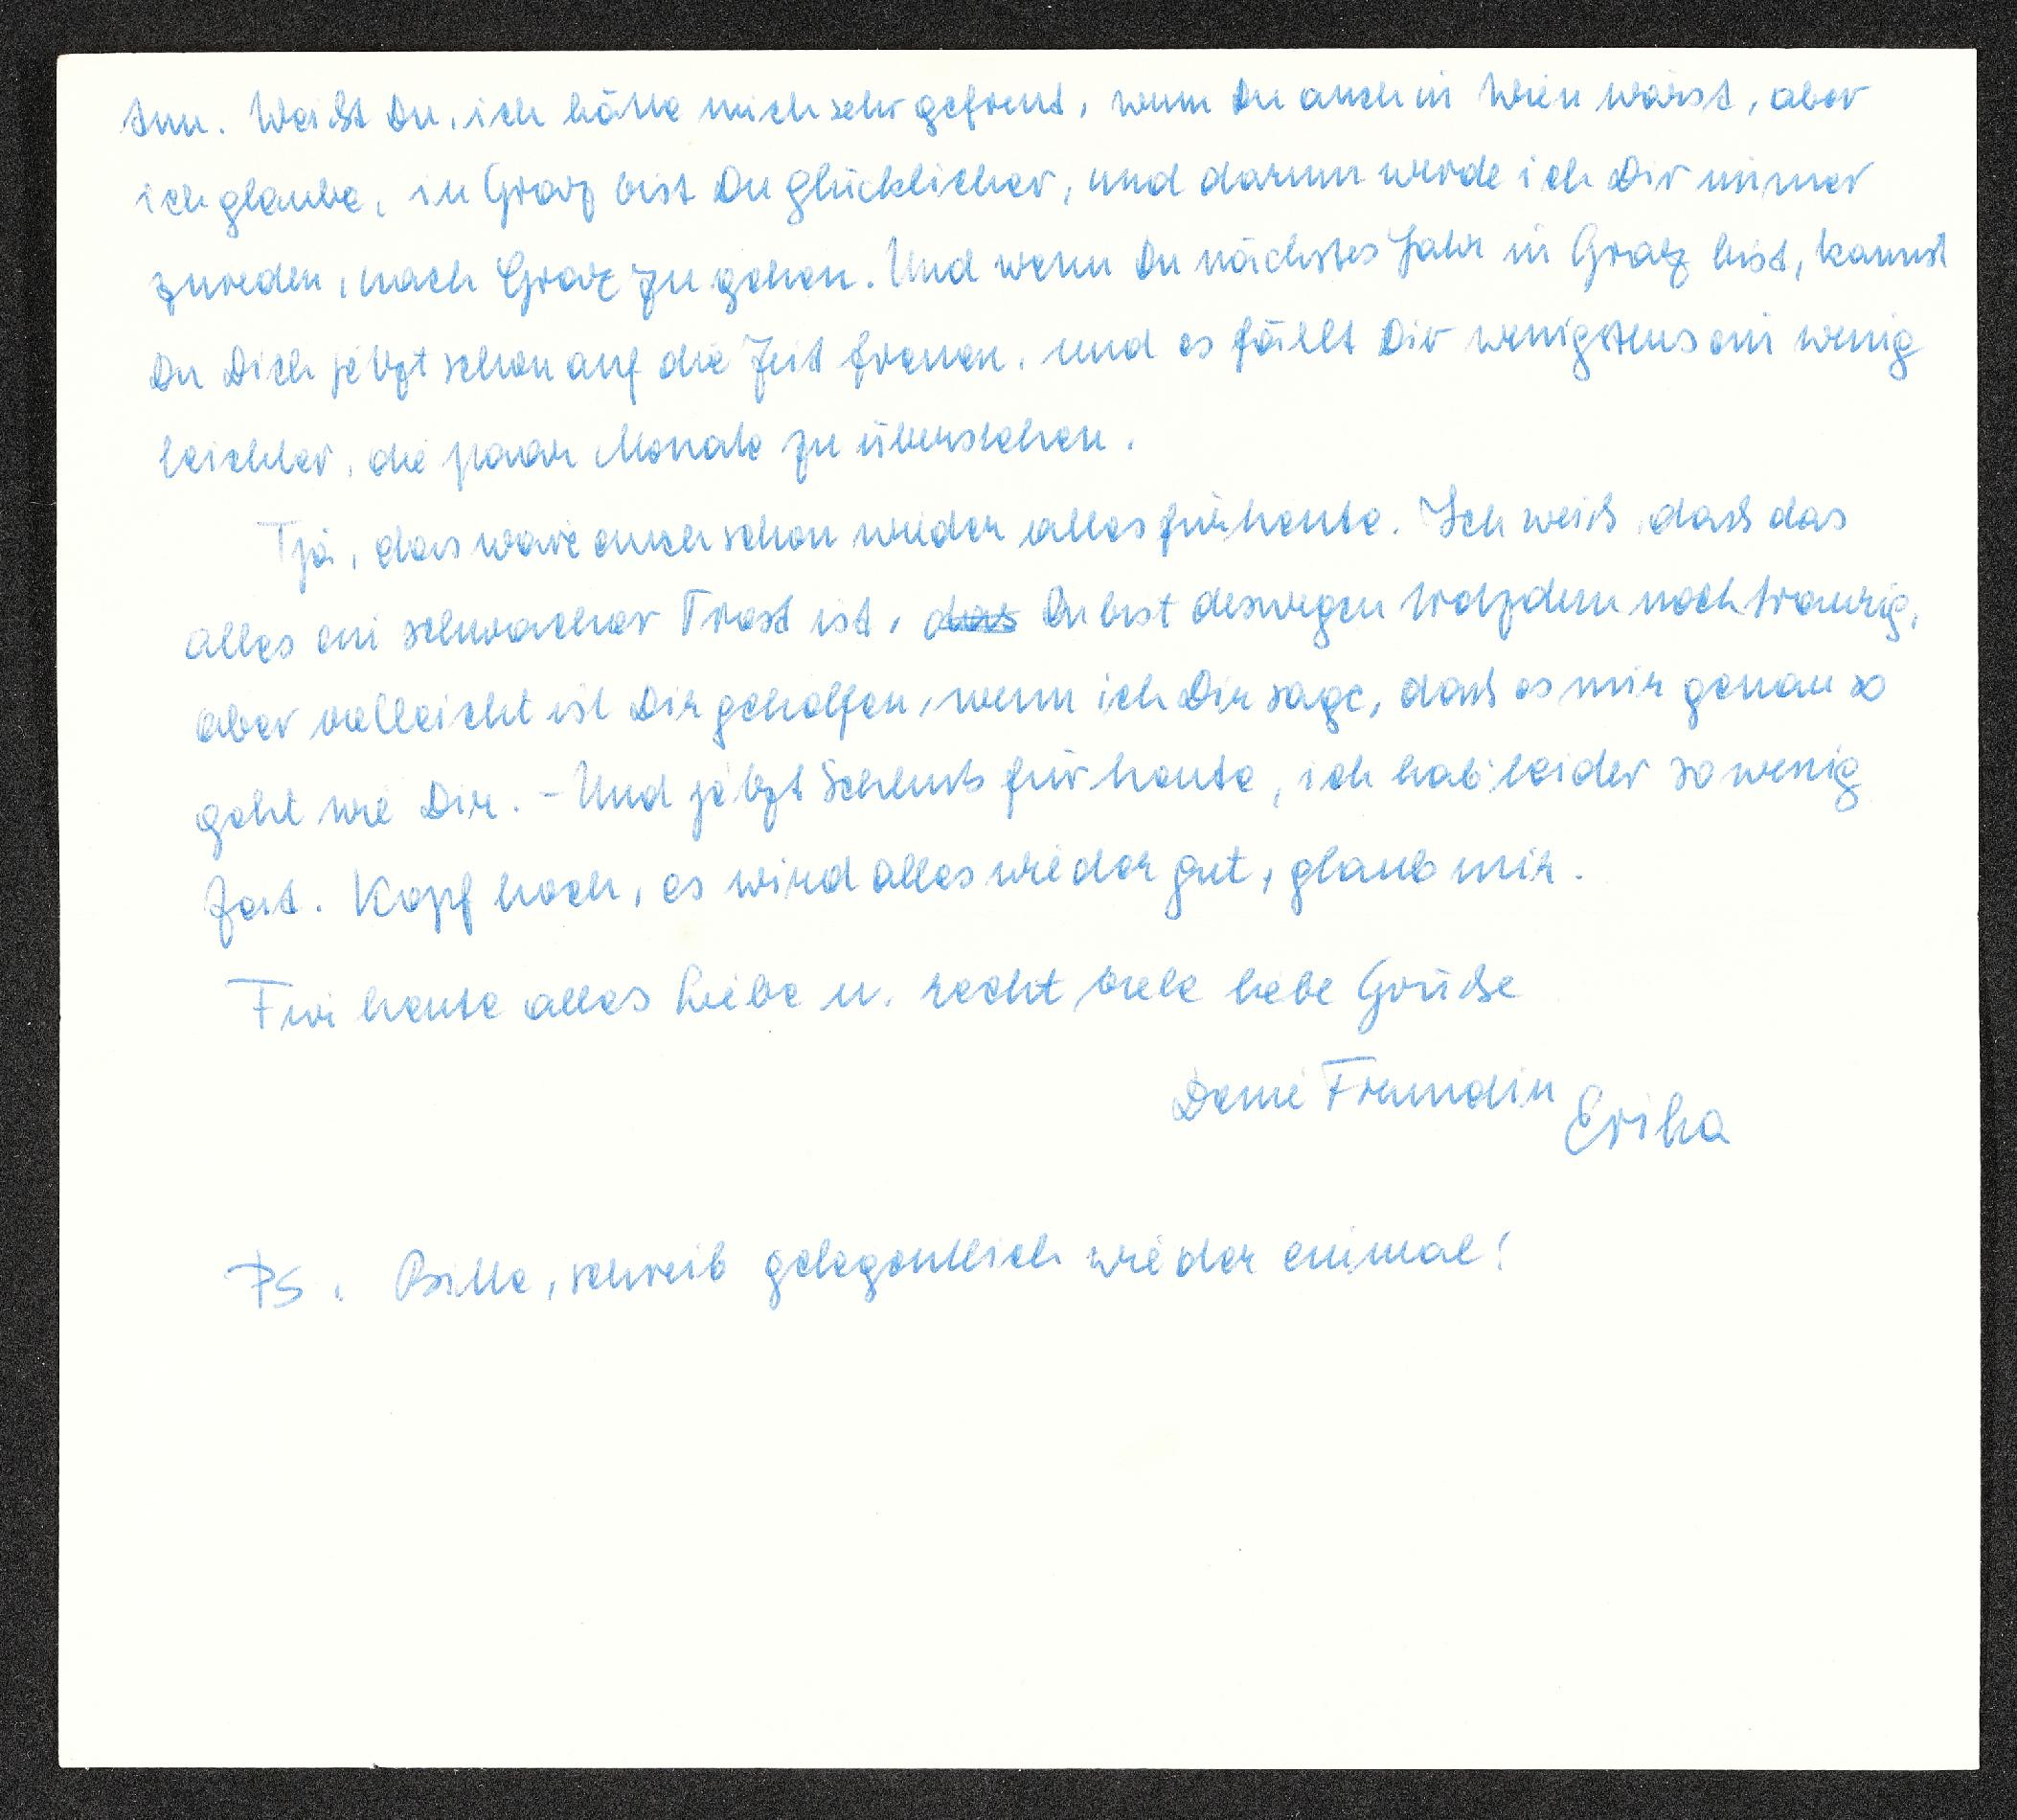 tun. Weißt Du, ich hätte mich sehr gefreut, wenn Du auch in Wien wärst, aber
ich glaube, in Graz bist Du glücklicher, und darum werde ich Dir immer
zureden, nach Graz zu gehen. Und wenn Du nächstes Jahr in Graz bist, kannst
Du Dich jetzt schon auf die Zeit freuen, und es fällt Dir wenigstens ein wenig
leichter, die paar Monate zu überstehen.
Tja, das wäre auch schon wieder alles für heute. Ich weiß, daß das
alles ein schwacher Trost ist, das Du bist deswegen trotzdem noch traurig,
aber vielleicht ist Dir geholfen, wenn ich Dir sage, daß es mir genau so
geht wie Dir. – Und jetzt Schluß für heute, ich hab' leider so wenig
Zeit. Kopf hoch, es wird alles wieder gut, glaub mir.
Für heute alles Liebe u. recht viele liebe Grüße
Deine Freundin Erika
PS. Bitte, schreib gelegentlich wieder einmal!